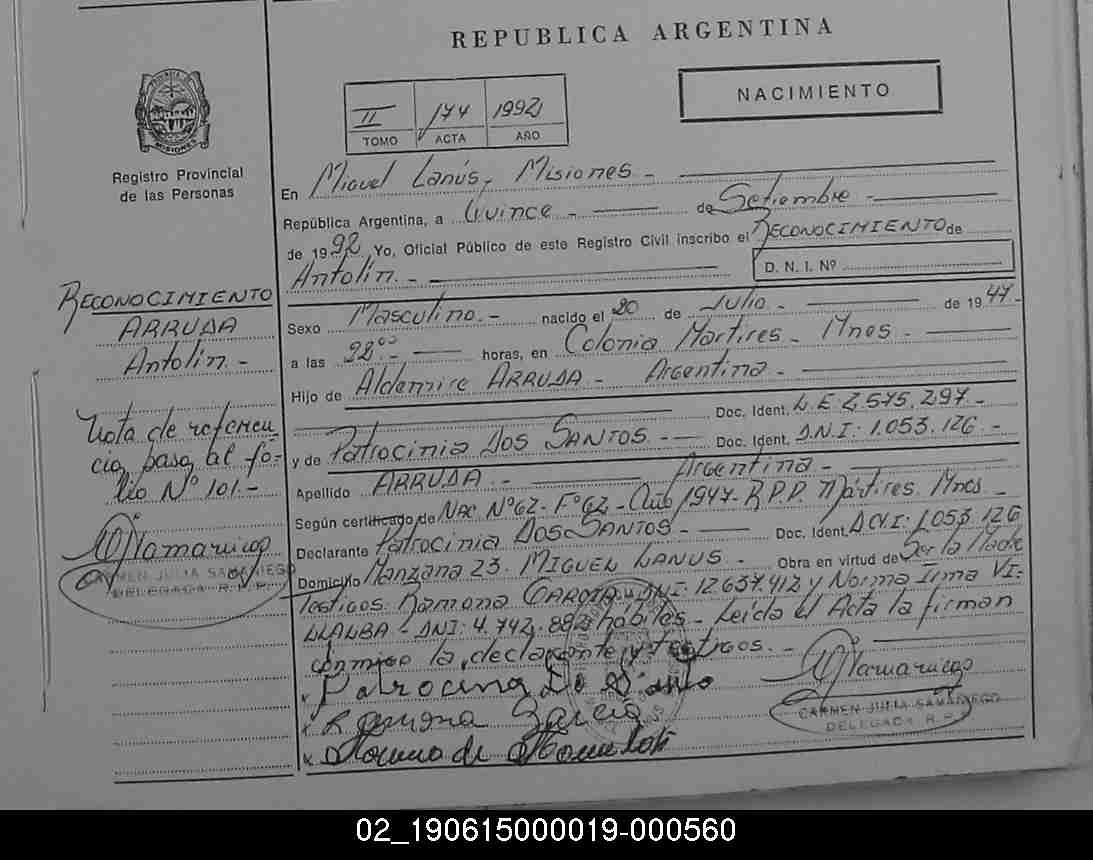 REPUBLICA ARGENTINA
PROVINCIA DE MISIONES
Registro Provincial
de las Personas
II 174 1992
TOMO ACTA AÑO
NACIMIENTO
En Miguel Lanús, Misiones -
República Argentina, a Quince - de Setiembre -
de 1992 Yo, Oficial Público de este Registro Civil inscribo el RECONOCIMIENTO de
Antolin. -
D. N. I. Nº
Sexo Masculino. - nacido el 20 de Julio - de 1947.-
a las 22:00 - horas, en Colonia Martires - Mnes -
Hijo de Aldemire ARRUDA - Argentina -
Doc. Ident. L.E 2,575,297.-
y de Patrocinia DOS SANTOS - Doc. Ident. D.N.I: 1.053.126 -
Argentina -
Apellido ARRUDA. -
Según certificado de NAC. Nº 62 - Fº 62 - 1947 - R.P.P. Mártires. Mnes -
Declarante Patrocinia DOS SANTOS - Doc. Ident. D.N.I: 1.053.126
Domicilio Manzana 23. MIGUEL LANUS - Obra en virtud de Ser la Madre
Testigos: Ramona GARCIA DNI: 12.637.412 y Norma Irma VI:
LLALBA - DNI: 4.742.882 hábiles - Leída el Acta la firman
conmigo la declarante y testigos. -
CARMEN JULIA SAMANIEGO
DELEGADA R. P. P.
RECONOCIMIENTO
ARRUDA
Antolin. -
Nota de referen
cia, pasa al fo-
lio Nº 101.-
CARMEN JULIA SAMANIEGO
DELEGADA R. P. P.
02_190615000019-000560